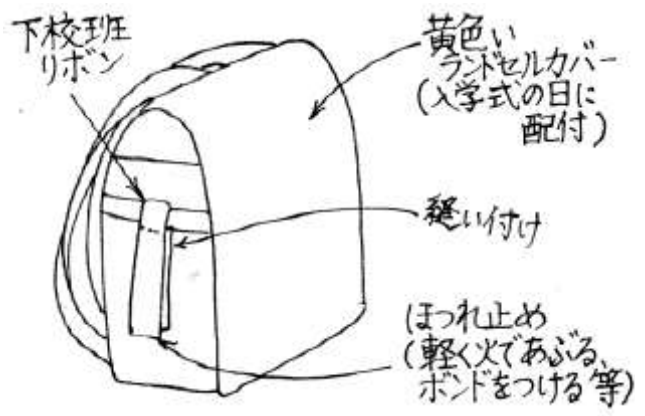 下校班
リボン
黄色い
ランドセルカバー
(入学式の日に
配付)
縫い付け
ほつれ止め
(軽く火であぶる、
ボンドをつける等)